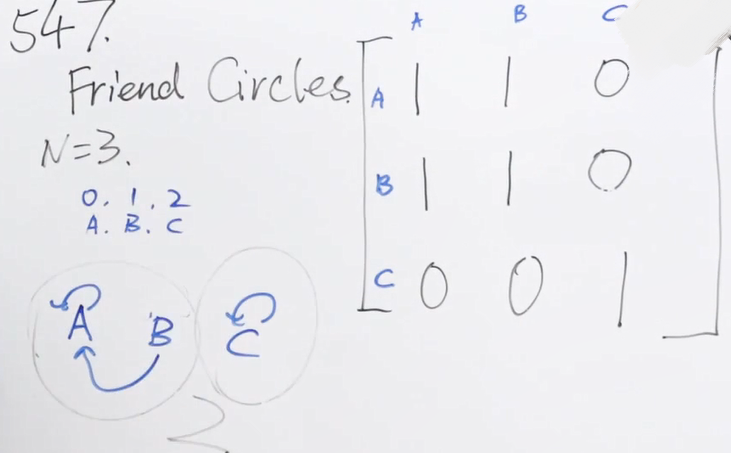 547.
Friend Circles.
N=3.
0. 1. 2
A. B. C
A B C
2
A B C
A 1 1 0
B 1 1 0
C 0 0 1